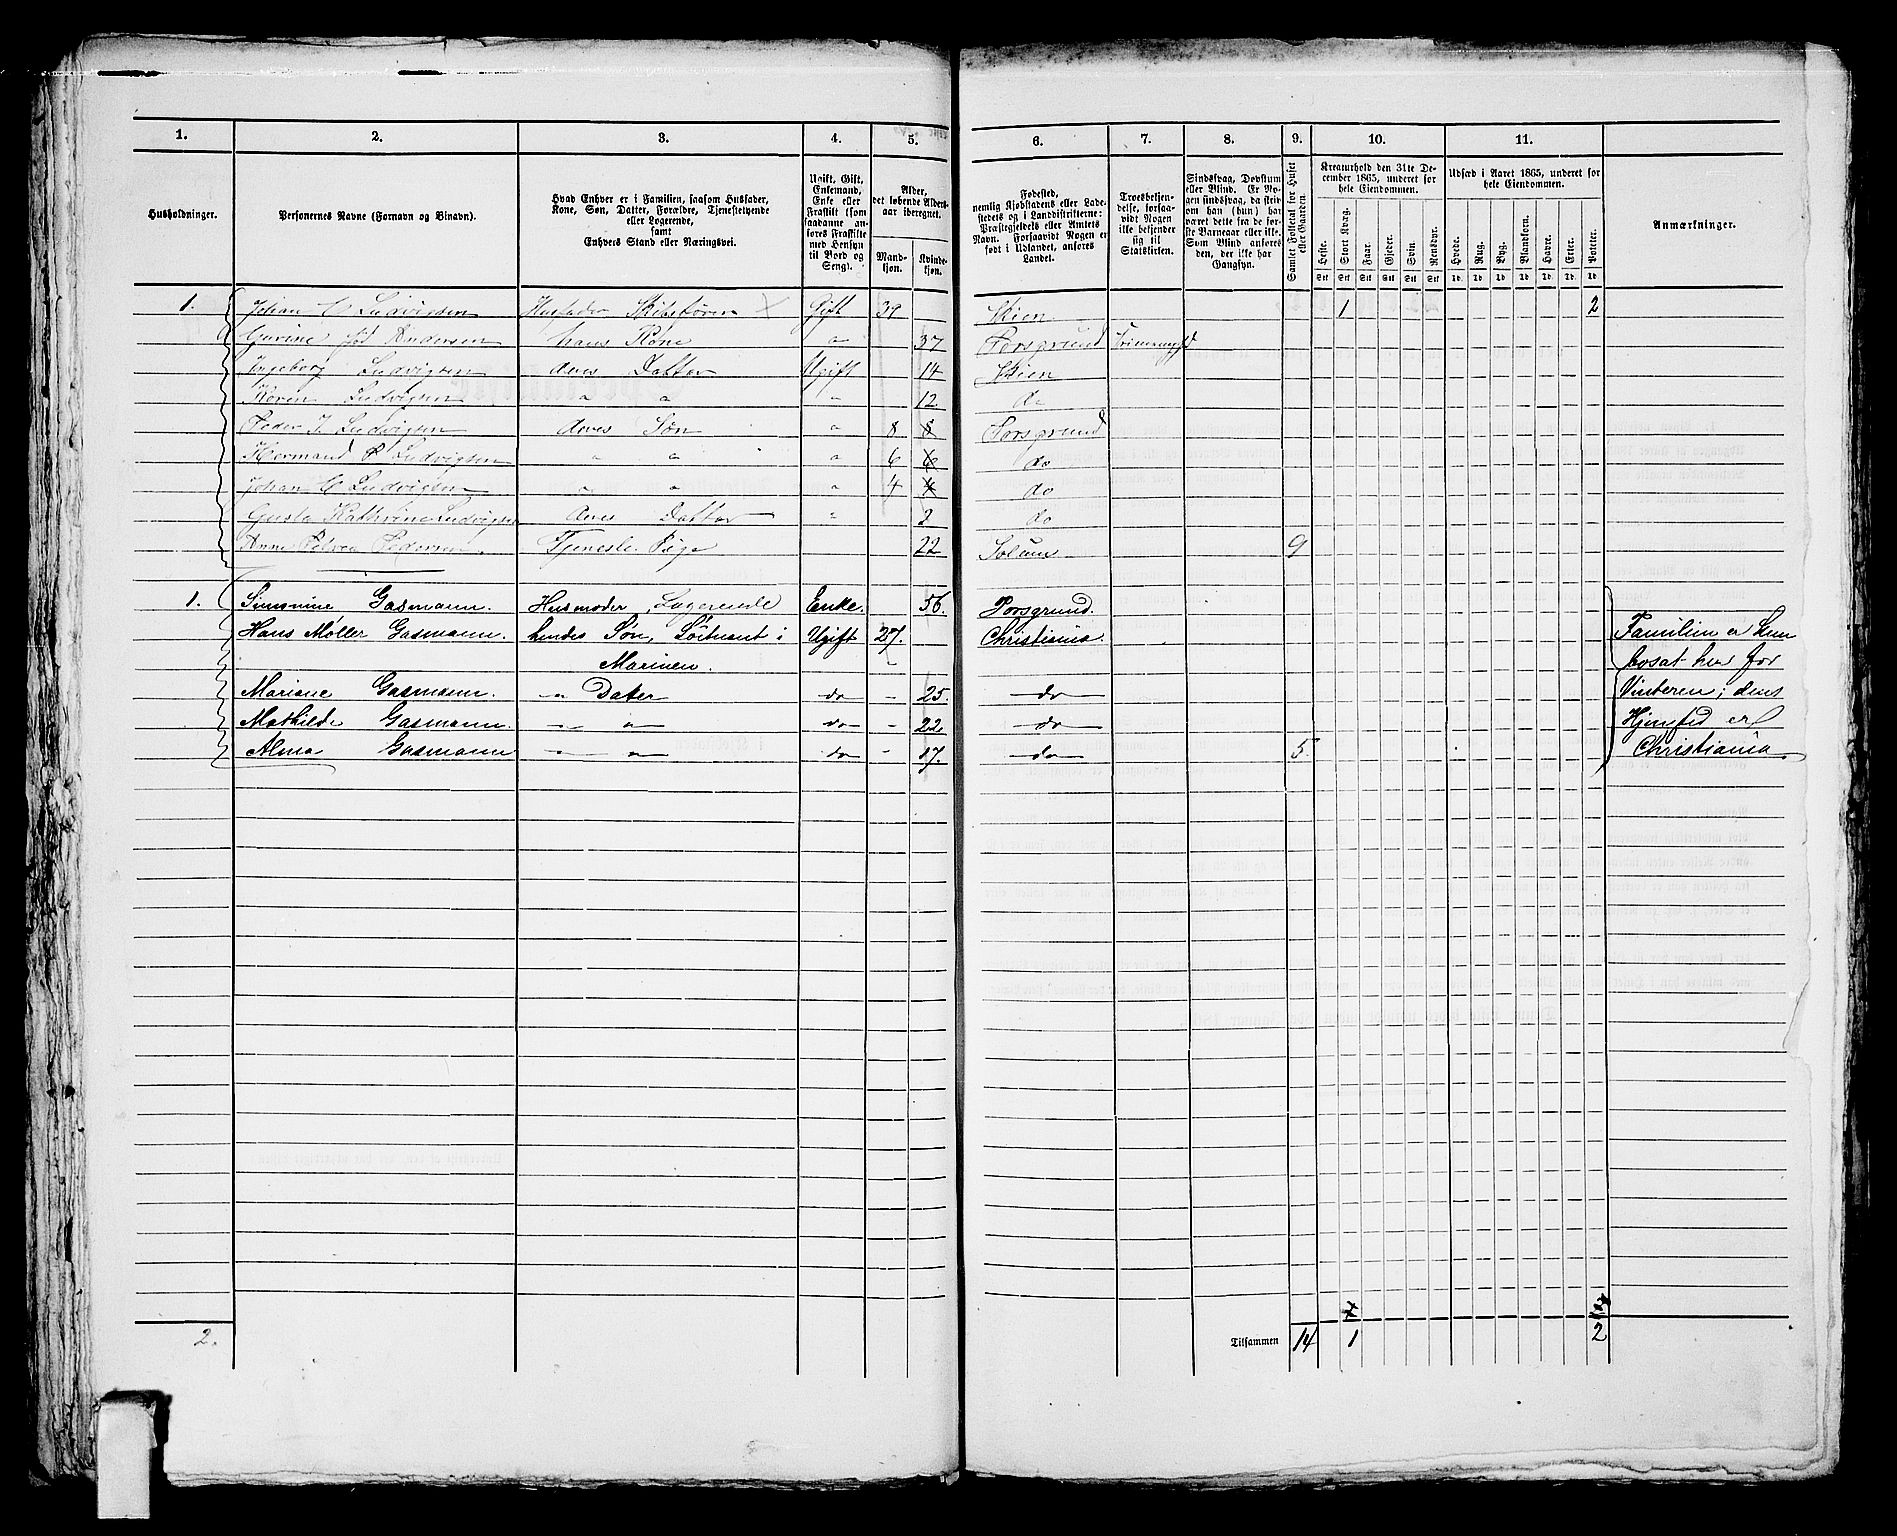 1. 2. 3. 4. 5. 6. 7. 8. 9. 10. 11.
Husholdninger.
Personernes Navne (Fornavn og Binavn).
Hvad Enhver er i Familien, saasom Husfader,
Kone, Søn, Datter, Forældre, Tjenestetyende
eller Logerende,
samt
Enhvers Stand eller Næringsvei.
Ugift, Gift,
Enkemand,
Enke eller
Fraskilt (som
saadanne an-
føres Fraskilte
med Hensyn
til Bord og
Seng).
Alder,
det løbende Alders-
aar iberegnet.
Mand-
kjøn.
Kvinde-
kjøn.
Fødested,
nemlig Kjøbstadens eller Lade-
stedets og i Landdistrikterne:
Præstegjeldets eller Amtets
Navn. Forsaavidt Nogen er
født i Udlandet, anføres
Landet.
Troesbekjen-
delse, forsaa-
vidt Nogen
ikke bekjender
sig til
Statskirken.
Sindssvag, Døvstum
eller Blind. Er No-
gen sindssvag, da skriv
om han (hun) har
været dette fra de før-
ste Barneaar eller ikke.
Som Blind anføres
den, der ikke har
Gangsyn.
Samlet Folketal for Huset
eller Gaarden.
Kreaturhold den 31te De-
cember 1865, underet for
hele Eiendommen.
Heste. Stort Kvæg. Faar. Gjeder. Svin. Rensdyr.
Udsæd i Aaret 1865, underet for
hele Eiendommen.
Hvede. Rug. Byg. Blandkorn. Havre. Erter. Poteter.
Anmærkninger.
1. Johan C Ludvigsen Husfader Skibsfører Gift 39 Skien 1 2
Gurine fød Andersen hans Kone " 37 Porsgrund
Ingeborg Ludvigsen deres Datter Ugift 14 Skien
Karen Ludvigsen " " " 12 do
Peder Ludvigsen deres Søn " 8 8 Porsgrund
Hermand P Ludvigsen " " " 6 6 do
Johan C Ludvigsen " " " 4 4 do
Gusta Kathrine Ludvigsen deres Datter " 2 do
Anne Pedersen Tjeneste Pige 22 Solum 9
1. Simmine Gasmann. Husmoder, Logerende Enke. 56. Porsgrund.
Hans Møller Gasmann. hendes Søn, Løitnant i Ugift 27. Christiania.
Marinen.
Mariane Gasmann. " Dater do - 25. do
Mathilde Gasmann. " " do - 22. do
Alma Gasmann " " do - 17. do 5.
Familien er kun
bosat her for
Vinteren; dens
Hjemsted er
Christiania
2. Tilsammen 14 1 2